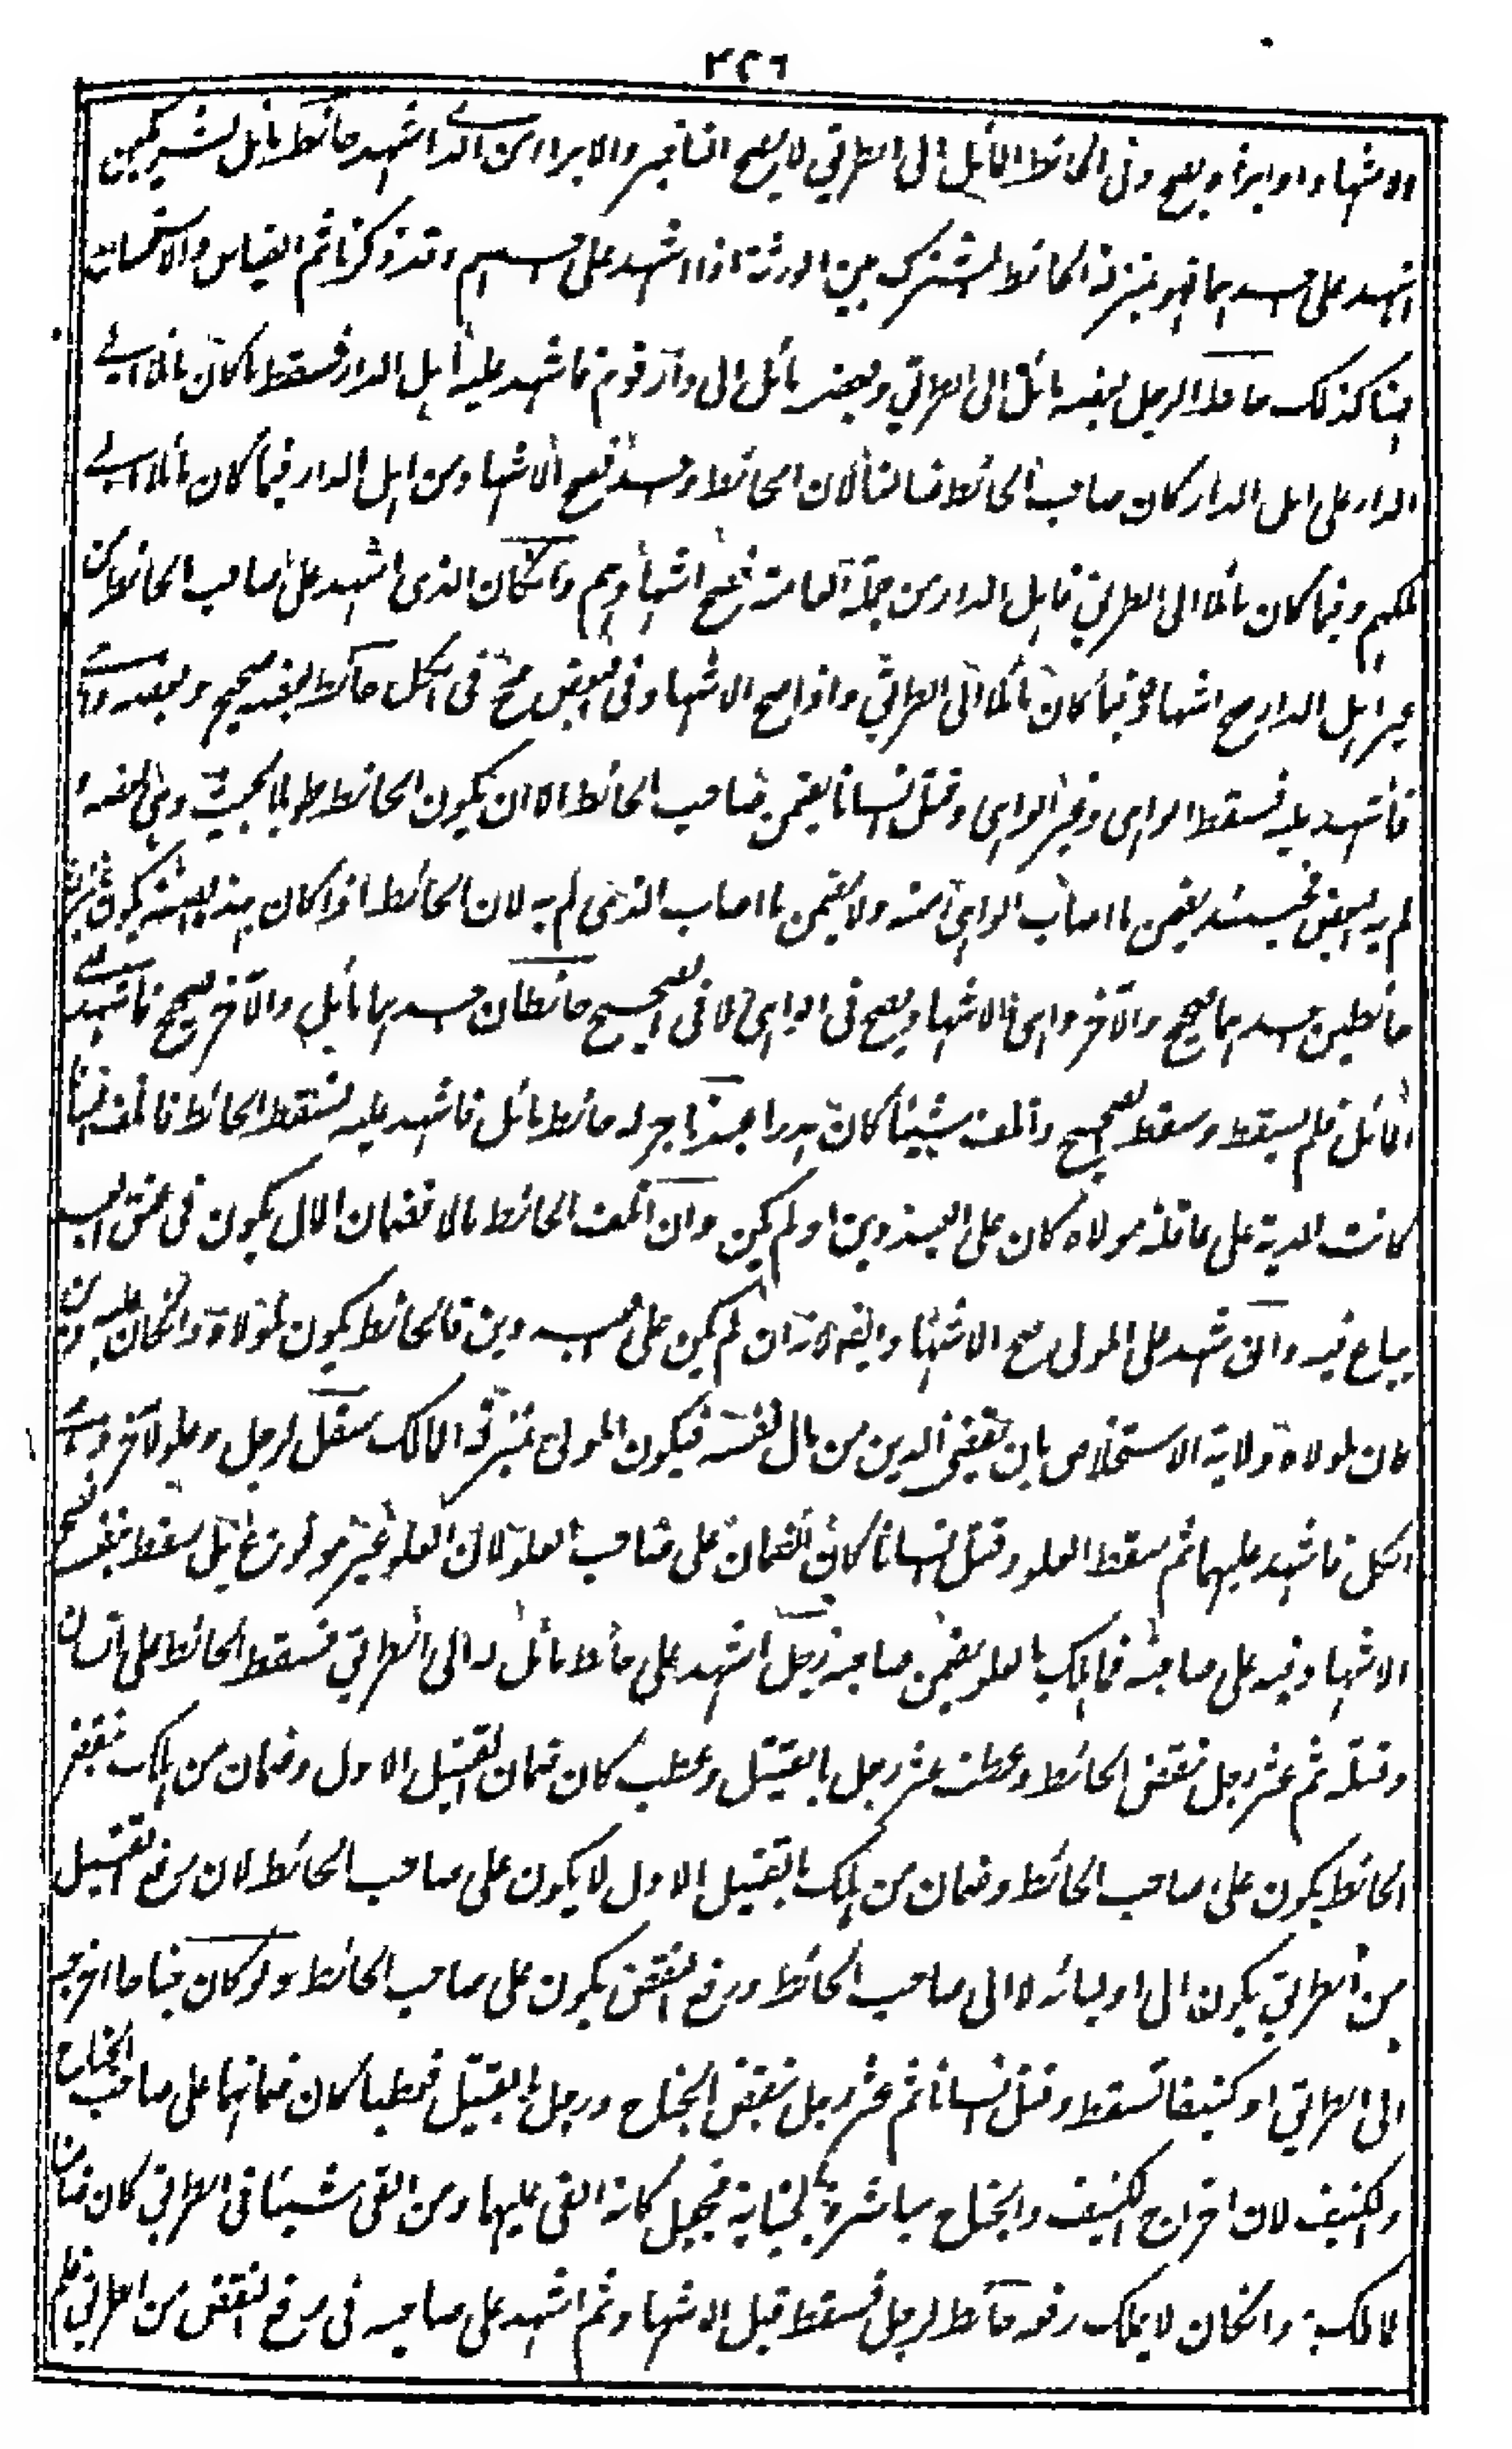 ٣٢٦
الاشهاد او ابرأه يصح وفى الحائط المائل الى الطريق لا يصح التاخير والابراء من الذى اشهد حائط مائل لشريكين
اشهد على احدهما فهو بمنزلة الحائط المشترك بين الورثة اذا اشهد على احدهم وقد ذكرنا ثم القياس والاستحسان
هنا كذلك حائط الرجل بعضه مائل الى الطريق وبعضه مائل الى دار قوم فاشهد عليه اهل الدار فسقط ما كان مائلا الى
الدار على اهل الدار كان صاحب الحائط ضامنا لان الحائط واحد فصح الاشهاد من اهل الدار فيما كان مائلا الى
ملكهم وفيما كان مائلا الى الطريق فاهل الدار من جملة العامة فصح اشهادهم وان كان الذى اشهد على صاحب الحائط من
غير اهل الدار صح اشهاده فيما كان مائلا الى الطريق واذا صح الاشهاد فى البعض صح فى الكل حائط بعضه صحيح وبعضه واهى
فاشهد عليه فسقط الواهى وغير الواهى وقتل انسانا يضمن صاحب الحائط الا ان يكون الحائط طويلا بحيث وهى بعضه و
لم يه البعض فحينئذ يضمن ما اصاب الواهى منه ولا يضمن ما اصاب الذى لم يه لان الحائط اذا كان بهذه الصفة يكون بمنزلة
حائطين احدهما صحيح والآخر واهى فالاشهاد يصح فى الواهى لا فى الصحيح حائطان احدهما مائل والآخر صحيح فاشهد على
المائل فلم يسقط وسقط الصحيح واتلف شيئا كان هدرا عبد تاجر له حائط مائل فاشهد عليه فسقط الحائط فاتلف انسانا
كانت الدية على عاقلة مولاه كان على العبد دين او لم يكن وان اتلف الحائط مالا فضمان المال يكون فى عنق العبد
يباع فيه وان اشهد على المولى صح الاشهاد ايضا لانه ان لم يكن على العبد دين فالحائط يكون لمولاه وان كان عليه دين
كان لمولاه ولاية الاستخلاص بان يقضى الدين من مال نفسه فيكون المولى بمنزلة المالك سفل لرجل وعلو لآخر وهى
الكل فاشهد عليهما ثم سقط العلو وقتل انسانا كان الضمان على صاحب العلو لان العلو غير مدفوع بل سقط بنفسه فصح
الاشهاد فيه على صاحبه فما هلك بالعلو يضمن صاحبه رجل اشهد على حائط مائل له الى الطريق فسقط الحائط على انسان
وقتله ثم عثر رجل بنقض الحائط وعطب ثم عثر رجل بالقتيل وعطب كان ضمان القتيل الاول وضمان من هلك بنقض
الحائط يكون على صاحب الحائط وضمان من هلك بالقتيل الاول لا يكون على صاحب الحائط لان رفع القتيل
من الطريق يكون الى اوليائه لا الى صاحب الحائط ورفع النقض يكون على صاحب الحائط ولو كان جناحا اخرجه
الى الطريق او كنيفا فسقط وقتل انسانا ثم عثر رجل بنقض الجناح ورجل بالقتيل فعطبا كان ضمانهما على صاحب الجناح
والكنيف لان اخراج الكنيف والجناح مباشرة الجناية فجعل كانه القى عليهما ومن القى شيئا فى الطريق كان ضامنا
لما هلك به وان كان لا يملك رفعه حائط لرجل فسقط قبل الاشهاد ثم اشهد على صاحبه فى رفع النقض من الطريق فلم